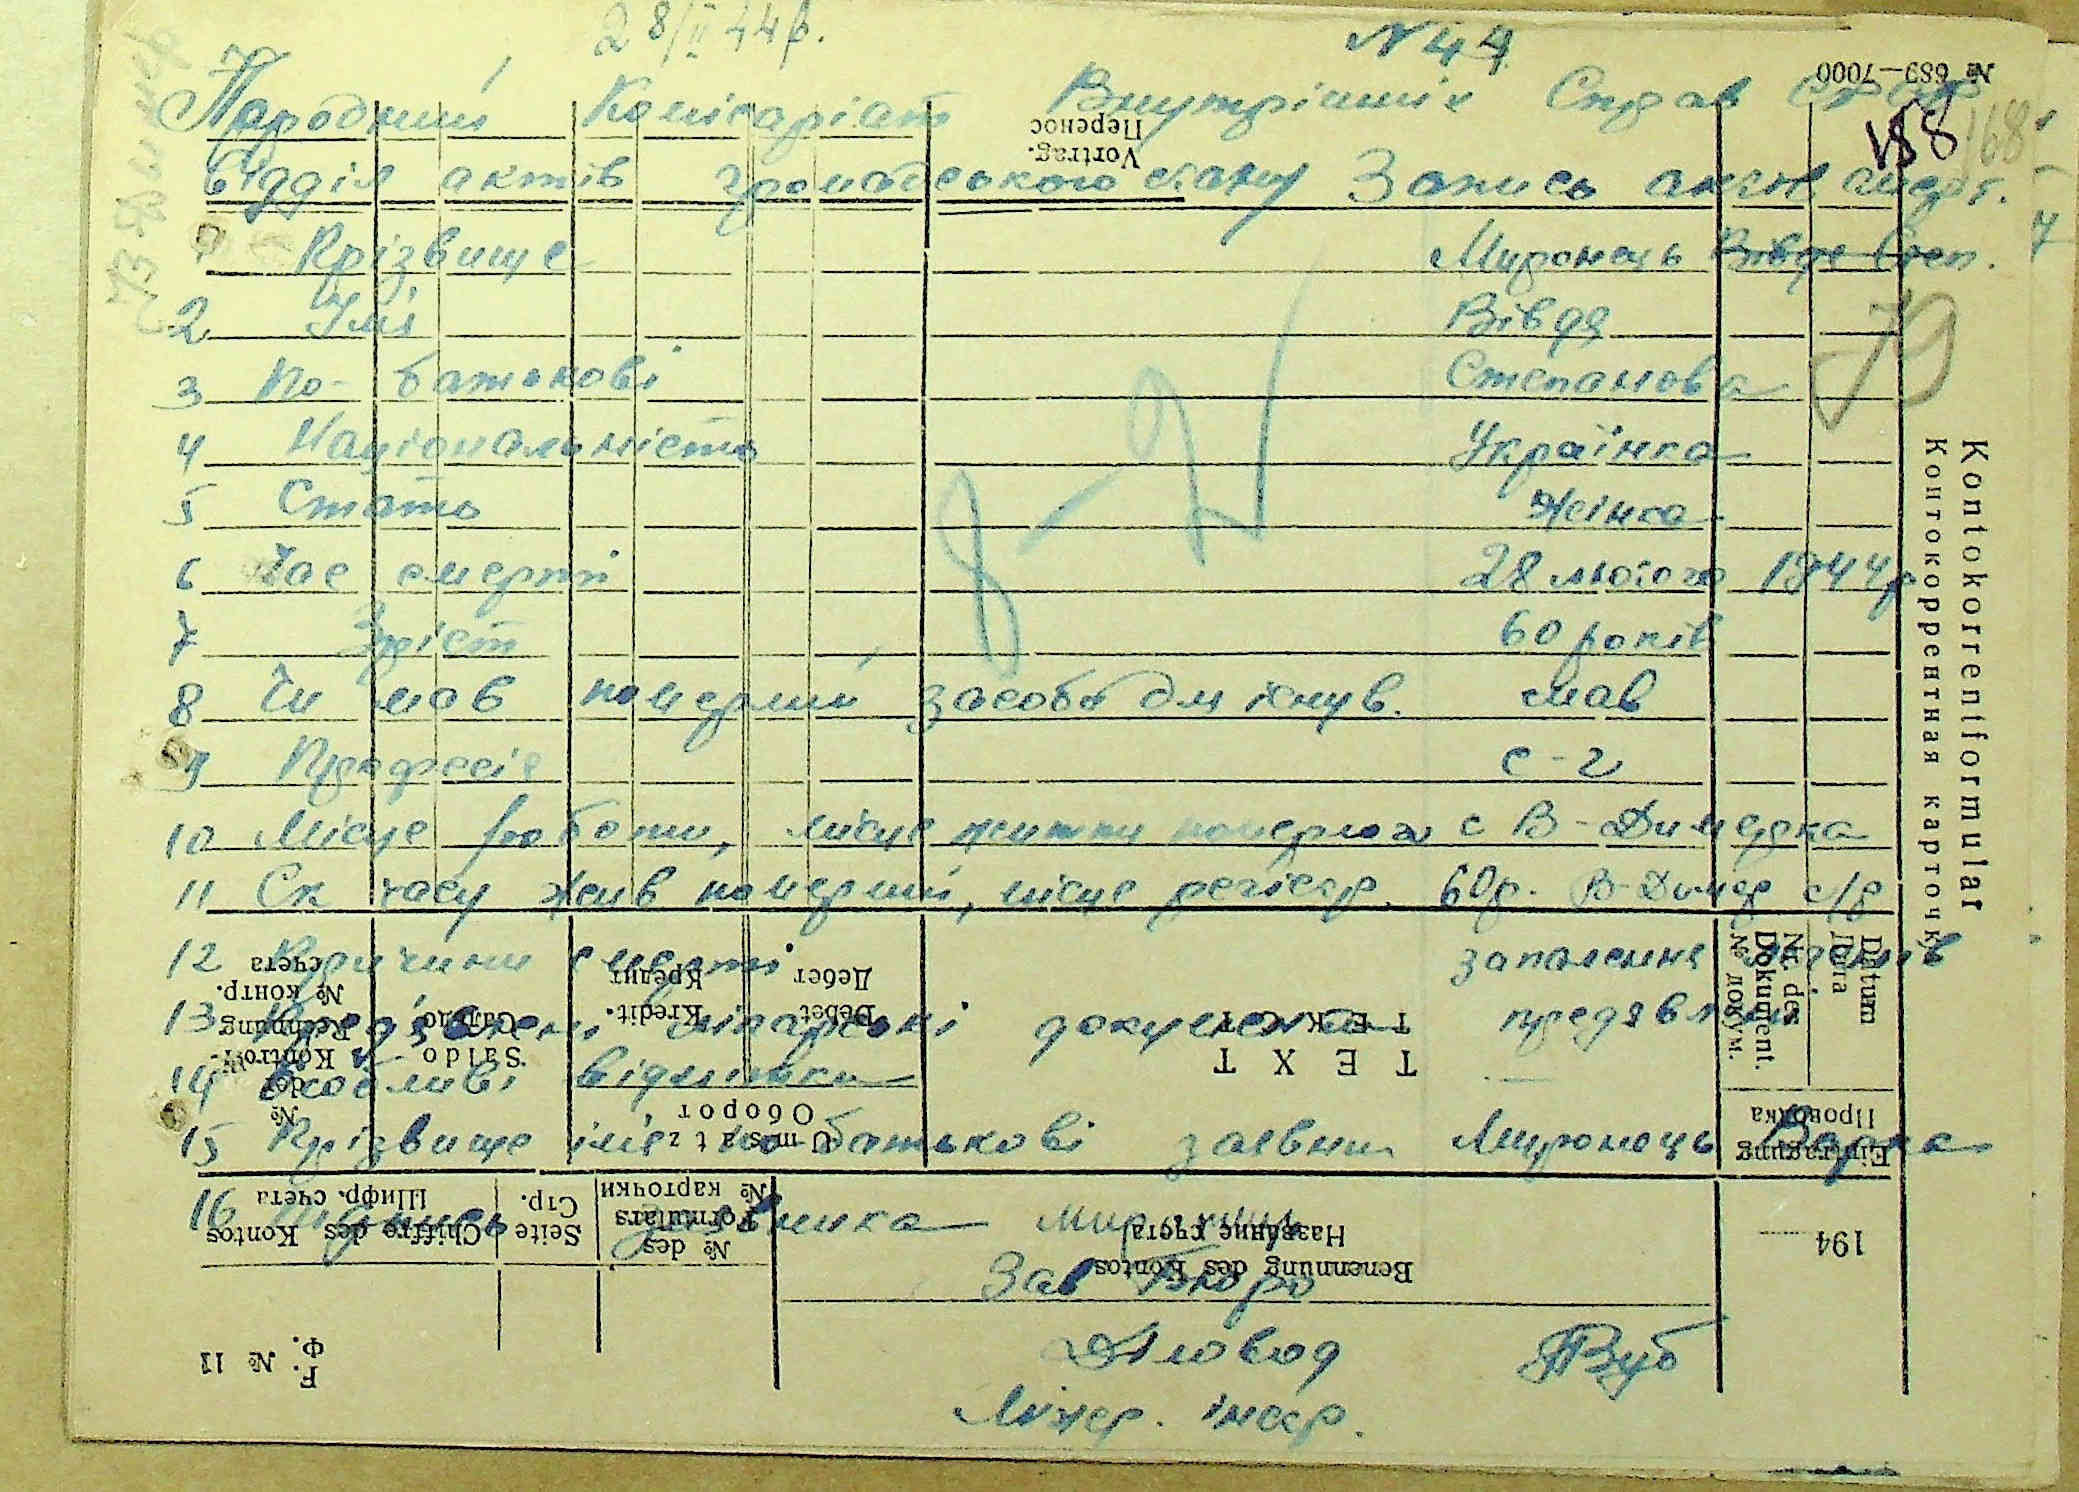 28/II 44р.
N 44
№ 689—7000
Народний Комісаріат Внутрішніх Справ СРСР
188
168
Перенос
Vortrag.
Відділ актів громадського стану Запис актів смерт.
1 Прізвище Миронець Вівдя Степ.
2 Імя Вівдя
3 По-батькові Степанова
4 Національність Українка
5 Стать Жінка
6 Час смерті 28 лютого 1944р
7 Зріст 60 років
8 Чи мав померший засоби для існув. мав
9 Професія с-г
10 Місце роботи, місце життя померлого с В-Димерка
11 Ск часу жив померший, місце реєстр. 60р. В-Димер с/р
12 Причини смерті запалення легенів
13 лікарські документи предявлені
14 Особливі відмітки —
15 Прізвище імя по-батькові заявни. Миронець Варка
16 Підпис заявника
Зав Бюро
Діловод
Інспр.
Kontokorrentformular
Контокоррентная карточка
Datum
Дата
Nr. des Dokument.
№ докум.
TEXT
ТЕКСТ
Debet
Дебет
Kredit
Кредит
Saldo
Сальдо
№ der Kontroll-Rechnung
№ контр. счета
Umsatz
Оборот
Eintragung
Проводка
194
Benennung des Kontos
Название счета
№ des Formulars
№ карточки
Seite
Стр.
Chiffre des Kontos
Шифр. счета
F. № 11
Ф.